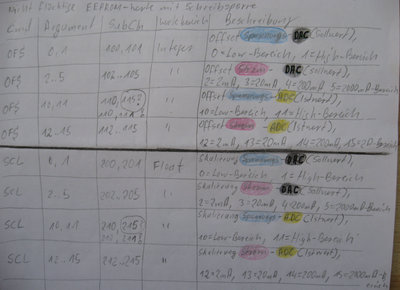 Nicht flüchtige EEPROM-Werte mit Schreibsperre
Cmd Argument SubCh Wertebereich Beschreibung
OFS 0,1 100,101 Integer Offset Spannungs-DAC (Sollwert),
0=Low-Bereich, 1=High-Bereich
OFS 2..5 102..105 " Offset Strom-DAC (Sollwert),
2=2mA, 3=20mA, 4=200mA, 5=2000mA-Bereich
OFS 10,11 110, " Offset Spannungs-ADC (Istwert),
10=Low-Bereich, 11=High-Bereich
OFS 12..15 112..115 " Offset Strom-ADC (Istwert),
12=2mA, 13=20mA, 14=200mA, 15=
SCL 0,1 200,201 Float Skalierung Spannungs-DAC (Sollwert),
0=Low-Bereich, 1=High-Bereich
SCL 2..5 202..205 " Skalierung Strom-DAC (Sollwert),
2=2mA, 3=20mA, 4=200mA, 5=2000mA-Bereich
SCL 10,11 210, 215? " Skalierung Spannungs-ADC (Istwert),
10=Low-Bereich, 11=High-Bereich
SCL 12..15 212..215 " Skalierung Strom-ADC (Istwert),
12=2mA, 13=20mA, 14=200mA, 15=2000mA-B
ereich